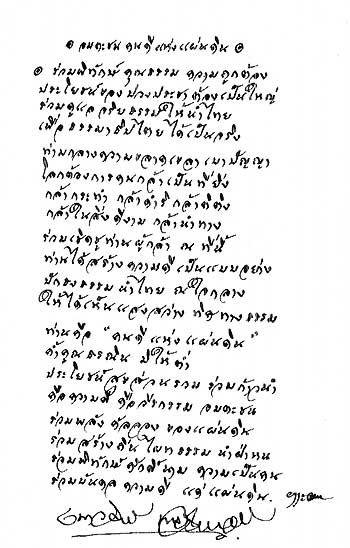 ๏ อมตะชน คนดีแห่งแผ่นดิน ๏
๏ ร่วมพิทักษ์ คุณธรรม ความถูกต้อง
ประโยชน์ของ ปวงประชา ต้องเป็นใหญ่
ร่วมดูแล จริยธรรม ให้นำไทย
เพื่อ ธรรมาธิปไตย ได้เป็นจริง
ท่ามกลางความขลาดเขลา เบาปัญญา
โลกต้องการคนกล้าเป็นที่ยิ่ง
กล้ากระทำ กล้าดำริ กล้าติติง
กล้าในสิ่งดีงาม กล้านำทาง
ร่วมเชิดชูท่านผู้กล้า ณ ที่นี้
ท่านได้สร้างความดี เป็นแบบอย่าง
ปักธงธรรม นำไทย ณ ใจกลาง
ให้ได้เห็นแสงสว่าง ทิศทางธรรม
ท่านคือ "คนดีแห่งแผ่นดิน"
ค้ำคูณธรณิน มิให้ต่ำ
ประโยชน์สุขส่วนรวม ร่วมก้าวนำ
คือความดี คือวีรกรรม อมตะชน
ร่วมพลัง ของแผ่นดิน
ร่วมสร้างถิ่น ธรรม นำ
ร่วมพิทักษ์ศักดิ์ ความเป็นคน
ร่วมบันดล ความดี แด่แผ่นดิน.